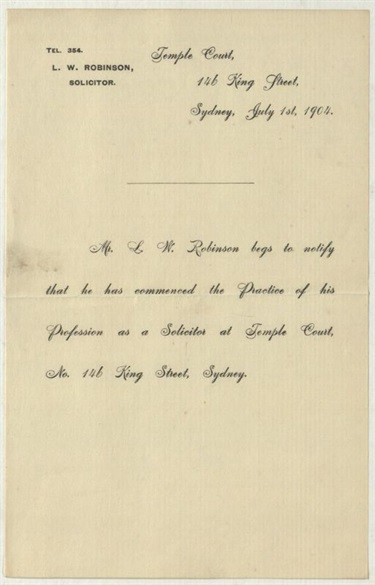 TEL. 254.
L. W. ROBINSON,
SOLICITOR.
Temple Court,
146 King Street,
Sydney, July 1st, 1904.
Mr. L. W. Robinson begs to notify
that he has commenced the Practice of his
Profession as a Solicitor at Temple Court,
No. 146 King Street, Sydney.